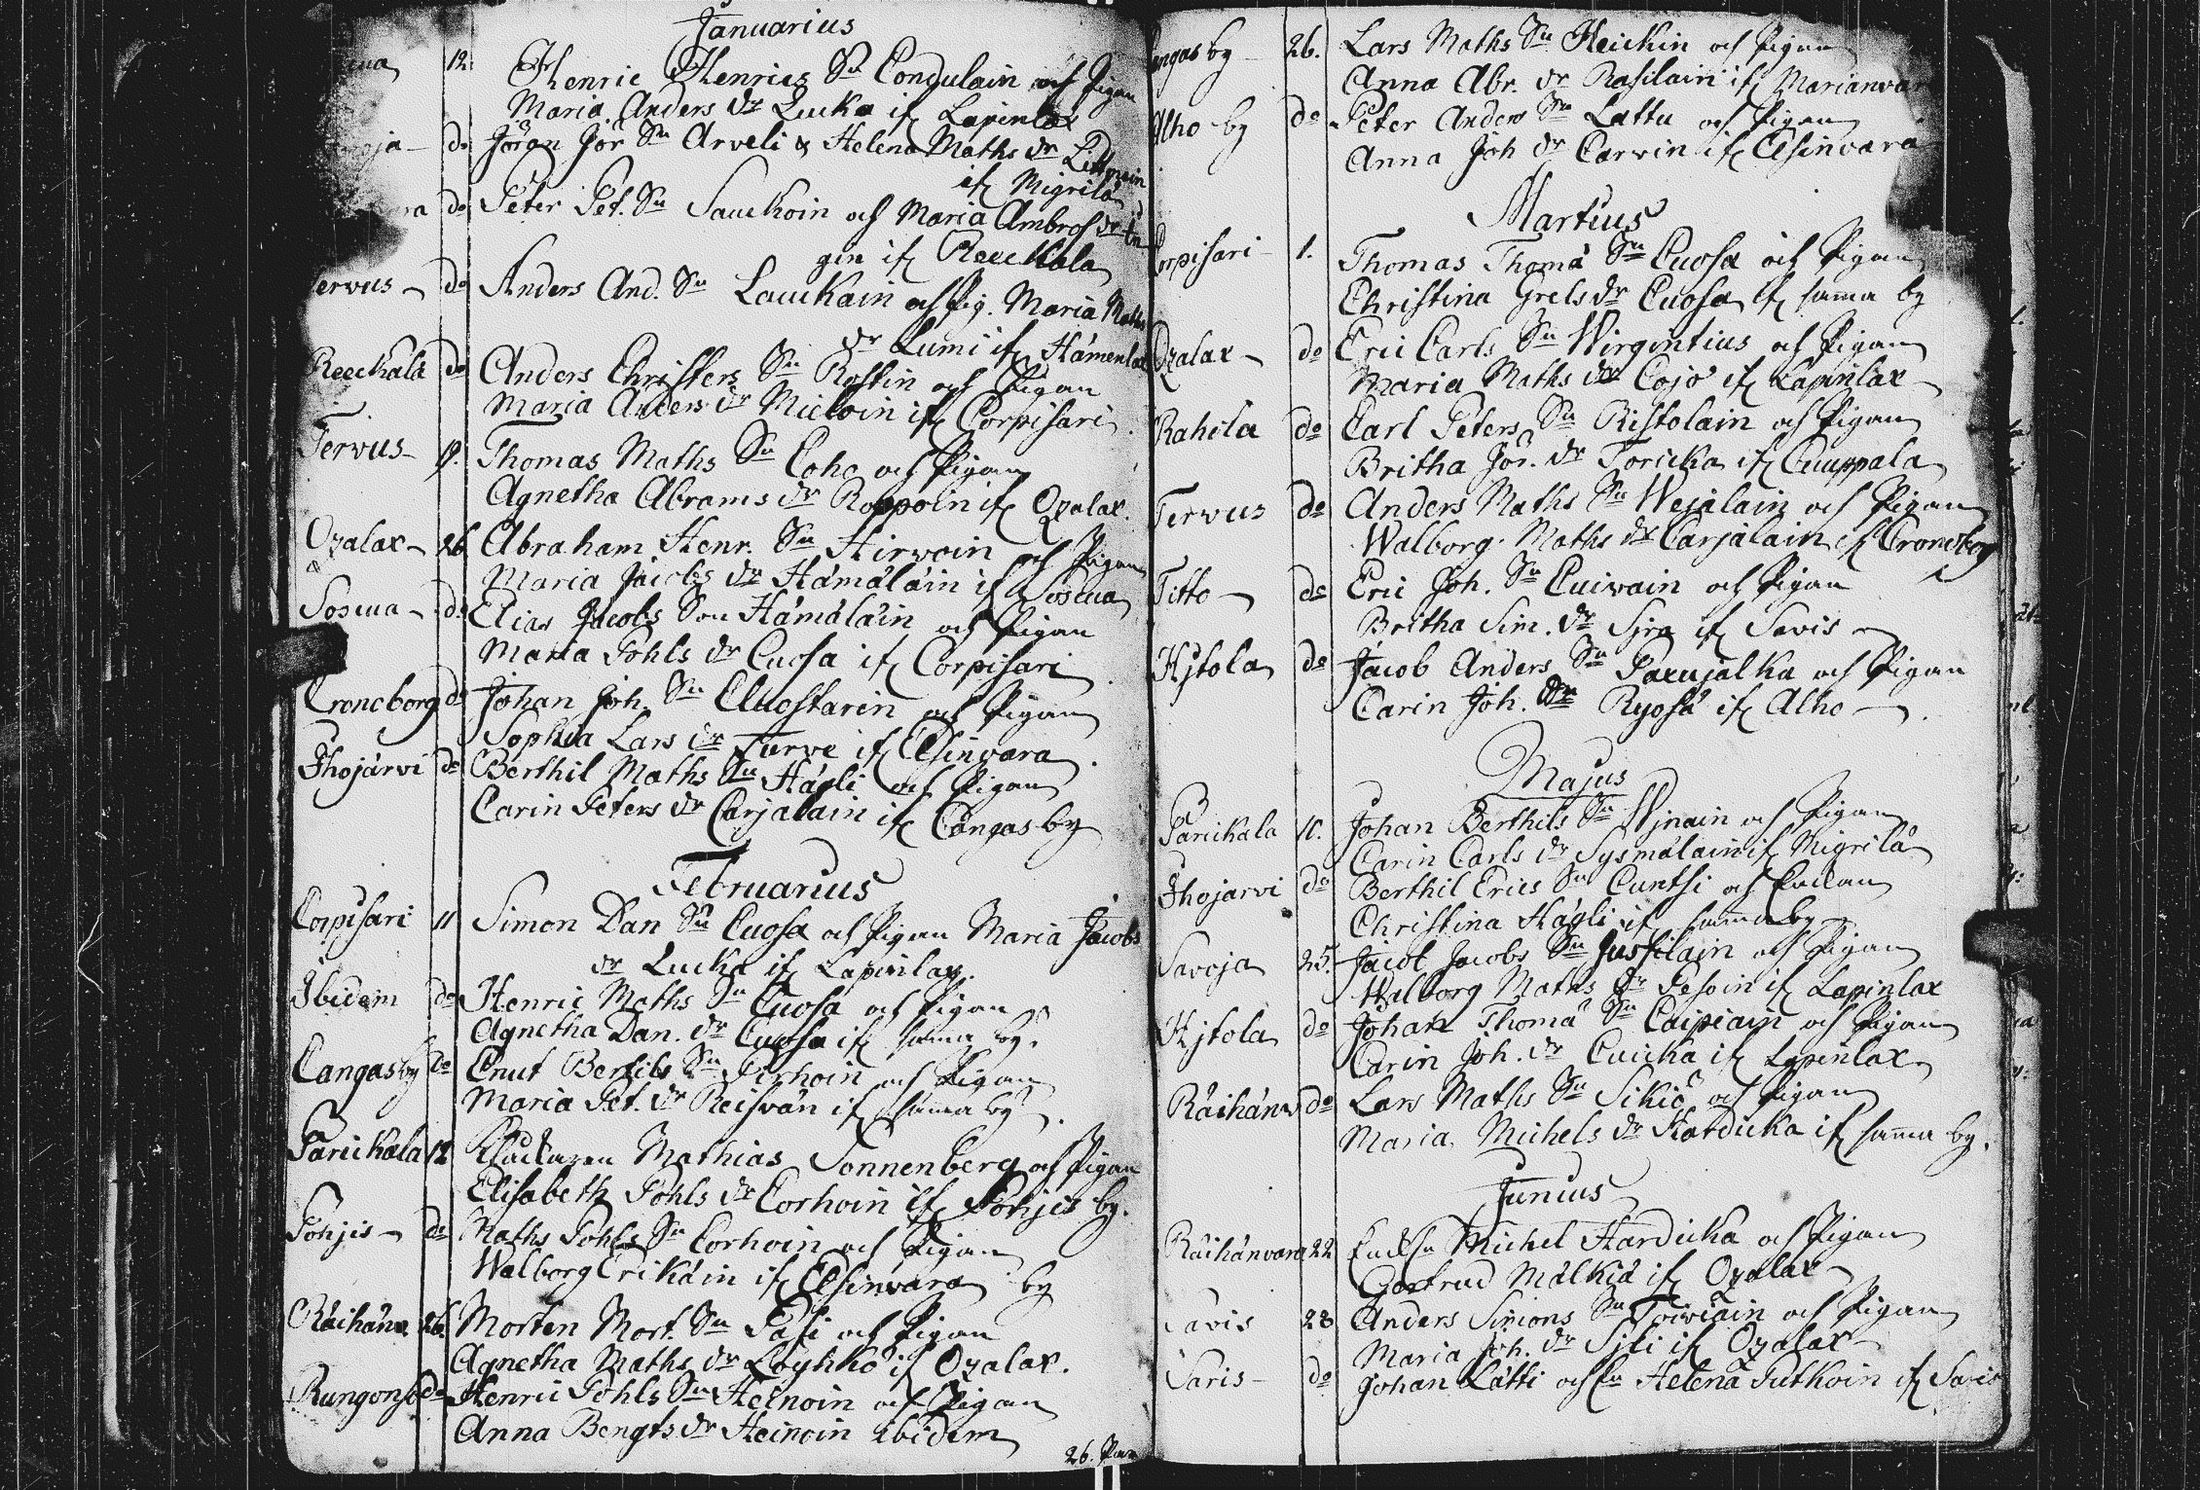 Januarius
12. Henric Henrics Sn Condulain och Pigan
Maria Anders dr Lucka if Lapinlax
do Jöran Jör Sn Arveli & Helena Maths dr
if Migrilä
do Peter Pet. Sn Sauckoin och Maria Ambros dr
gin if Reeckala
ervus do Anders And. Sn Lauckain och Pig. Maria Maths
dr Lumi if Hämenlax
Reeckala do Anders Christers Sn Rostin och Pigan
Maria Anders dr Micloin if Corpisari
Tervus 19. Thomas Maths Sn Coho och Pigan
Agnetha Abrams dr Roppoin if Oxalax.
Oxalax 26 Abraham Henr. Sn Hirvoin och Pigan
Maria Jacobs dr Hämäläin if Soscua
Soscua do Elias Jacobs Son Hämäläin och Pigan
Maria Pohls dr Cuosa if Corpisari
Croneborg do Johan Joh. Sn Cluostarin och Pigan
Sophia Lars dr Turve if Elsinvara.
Ihojärvi do Berthil Maths Sn Hägli och Pigan
Carin Peters dr Carjalain if Cangas by
Februarius
Corpisari 11 Simon Dan Sn Cuosa och Pigan Maria Jacobs
dr Lucka if Lapinlax.
Ibidem do Henric Maths Sn Cuosa och Pigan
Agnetha Dan. dr Cuosa if samma by.
Cangasby do Cnut Bertils Sn Pirhoin och Pigan
Maria Pet. dr Reisvän if samma by.
Parickala 12 Kluckaren Mathias Sonnenberg och Pigan
Elisabeth Pohls dr Corhoin if Pohjis by.
Pohjis do Maths Pohls Sn Corhoin och Pigan
Walborg Erikäin if Elsinvara by
Räihänv 26. Morten Mort. Sn Pasi och Pigan
Agnetha Maths dr Löyhkö if Oxalax.
Rungonso do Henric Pohls Sn Heinoin och Pigan
Anna Bengts dr Heinoin ibidem
26. Par
angas by 26. Lars Maths Sn Heickin och Pigan
Anna Abr. dr Rasilain if Marianvar
Alho by do Peter Anders Sn Lattu och Pigan
Anna Joh dr Carvin if Elsinvara
Martius
orpisari 1. Thomas Thomä Sn Cuosa och Pigan
Christina Grels dr Cuosa if sama by
Oxalax do Eric Carls Sn Wirgintius och Pigan
Maria Maths dr Cojo if Lapinlax
Rahola do Carl Peters Sn Ristolain och Pigan
Britha Jör. dr Toricka if Cuuppala
Tervus do Anders Maths Sn Wejalain och Pigan
Walborg Maths dr Carjalain if Croneborg
Titto do Eric Joh. Sn Cuivain och Pigan
Britha Sim. dr Sira if Savis
Hjtola do Jacob Anders Sn Paxujalka och Pigan
Carin Joh. dr Ryosä if Alho.
Majus
Parickala 10. Johan Berthils Sn Wjnain och Pigan
Carin Carls dr Sysmäläin if Migrilä
Ihojarvi do Berthil Erics Sn Cuntsi och Enckan
Christina Hägli if samma by
Savoja 25. Jacob Jacobs Sn Jussilain och Pigan
Walborg Maths dr Pesoin if Lapinlax
Hjtola do Johan Thomä Sn Caipiain och Pigan
Carin Joh. dr Cuicka if Lapinlax
Räihänv do Lars Maths Sn Sikiö och Pigan
Maria Michels dr Hardicka if samma by.
Junius
Räihänvara 22 Michel Hardicka och Pigan
Gertrud Mälkiä if Oxalax
Savis 28 Anders Simons Sn Toiviain och Pigan
Maria Joh. dr if Oxalax
Saris do Johan Lätti och Helena Putkoin if Savis